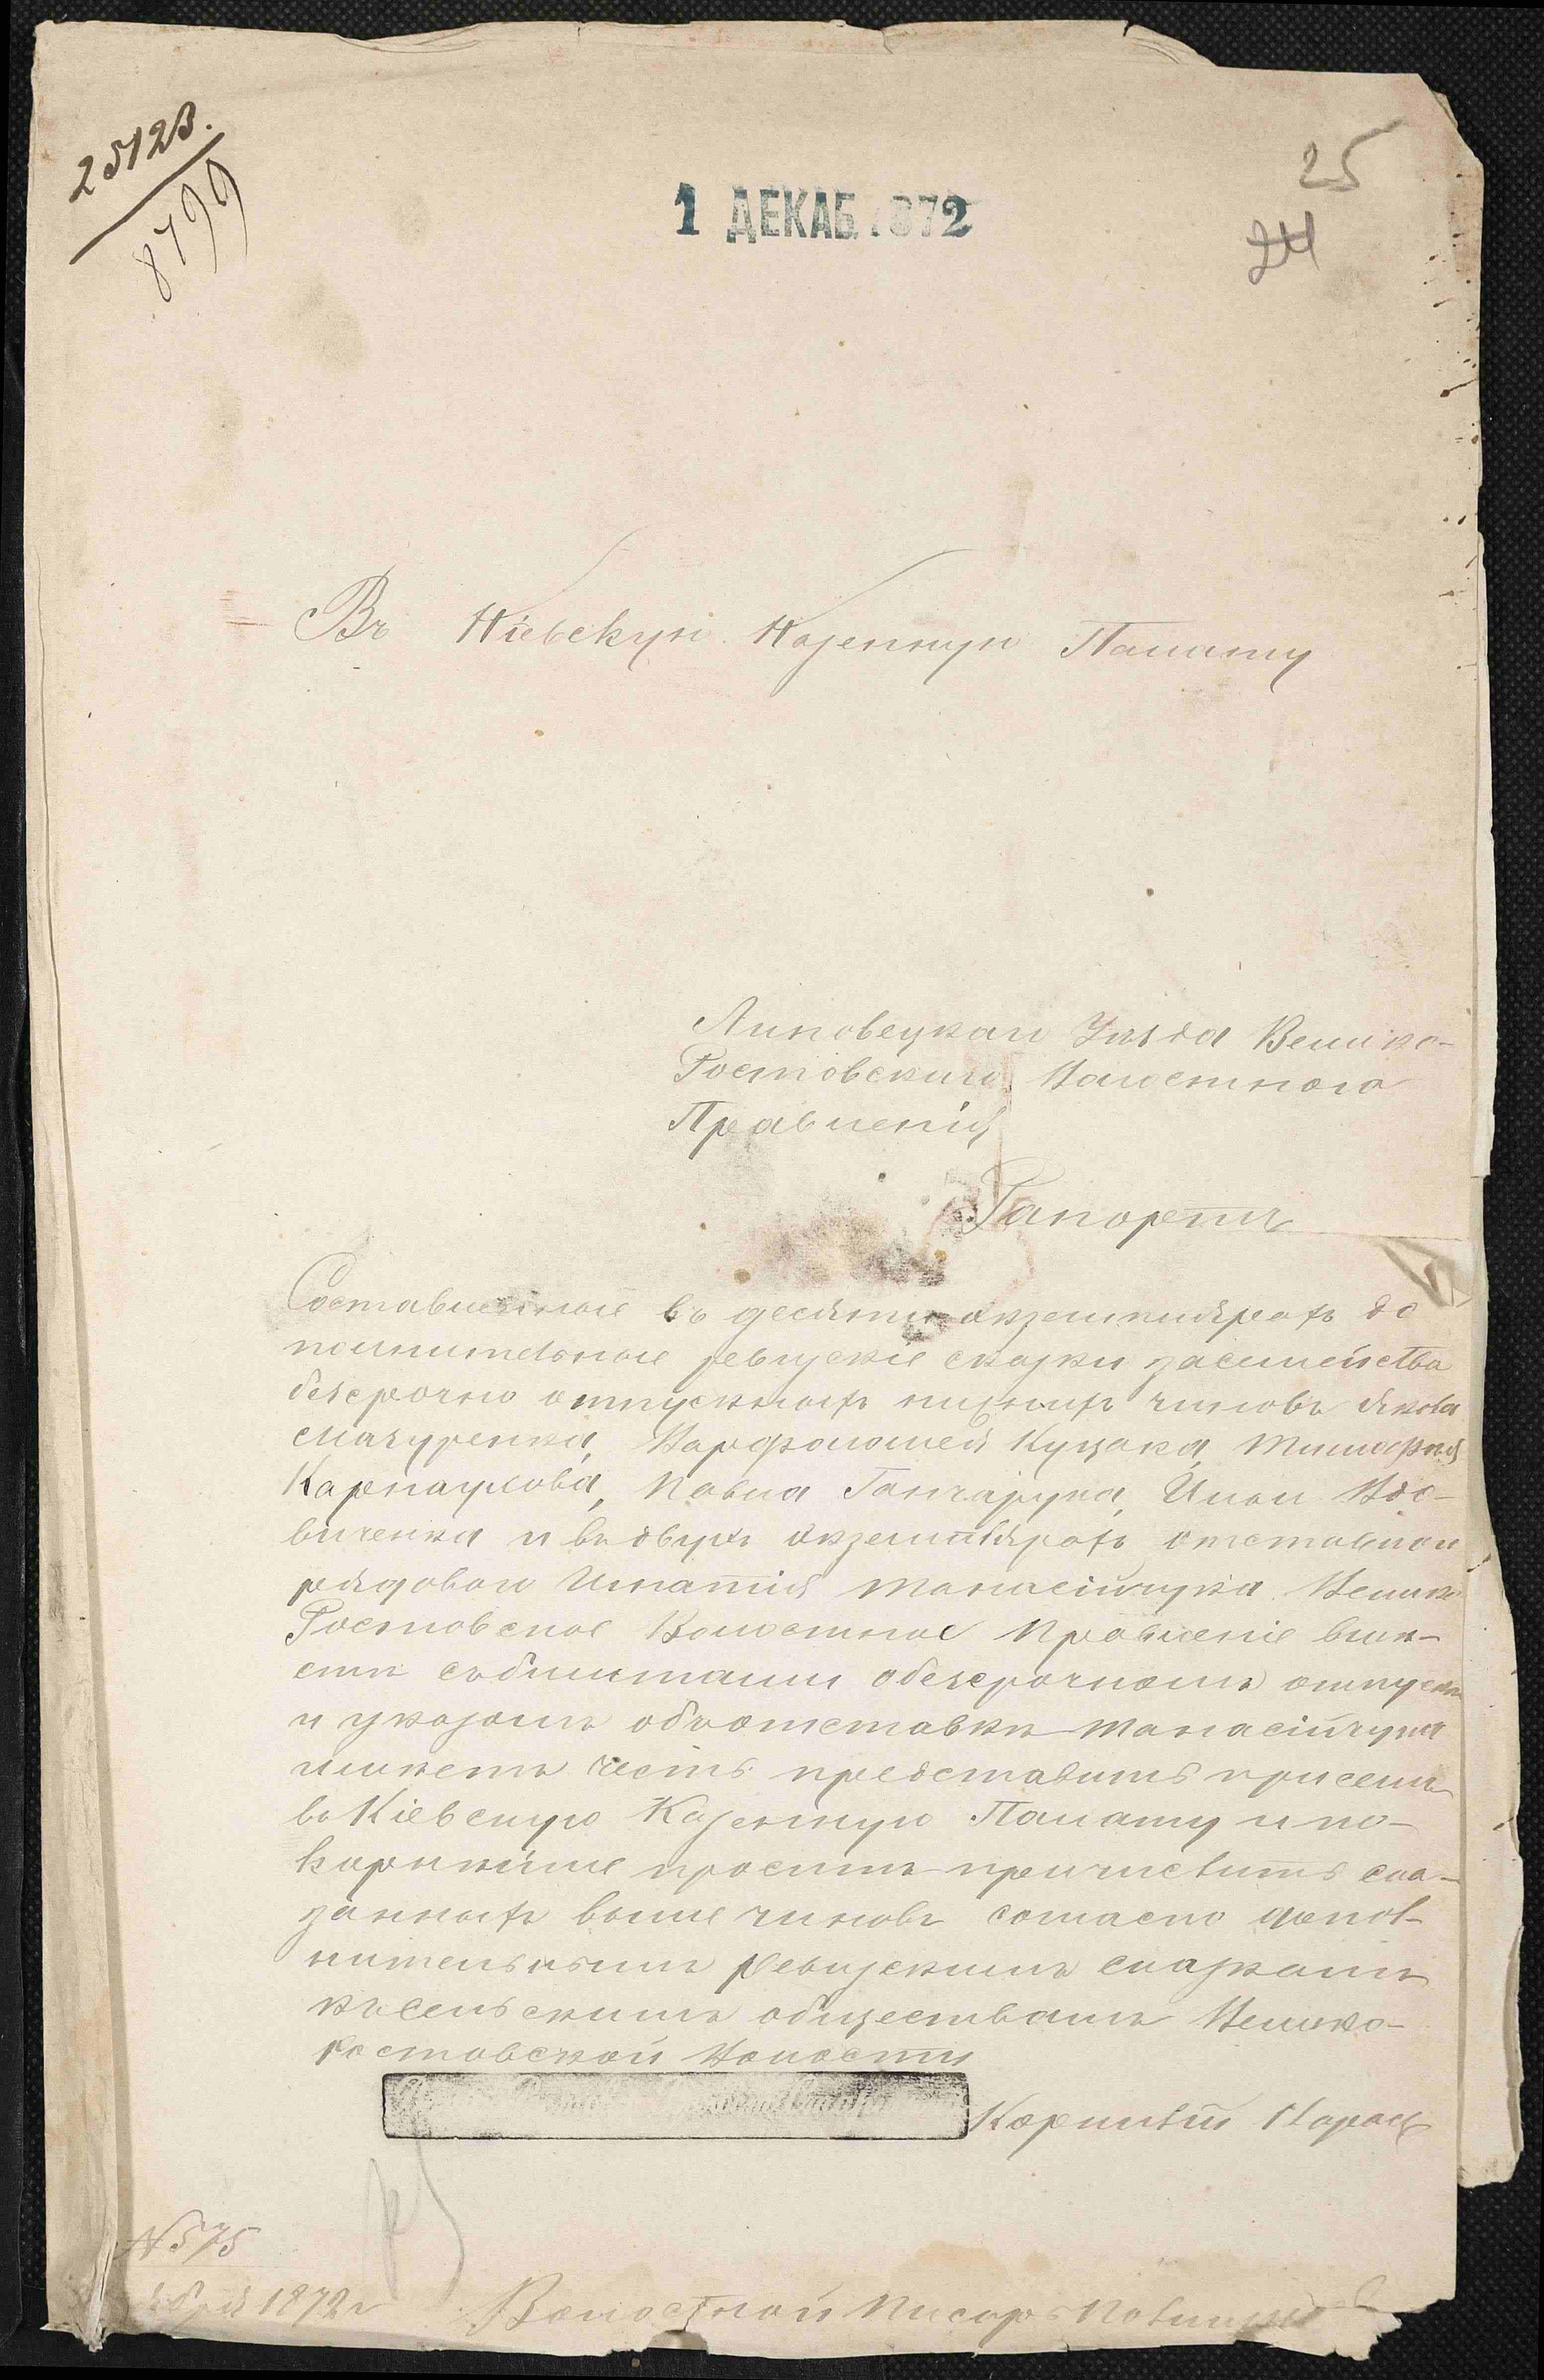 25123.
8799
1 ДЕКАБ. 1872
25
24
Въ Кіевскую Казенную Палату
Липовецкаго Уѣзда Велико-
Ростовскаго Волостного
Правленія
Рапортъ
Составленные въ десяти экземплярахъ до
полнительные ревизскіе сказки засемейства
безсрочно отпускныхъ нижнихъ чиновъ Якова
Мачуренка, Варфоломея Куцака, Тимофея
Карнаухова, Павла Ганчарука, Вдо-
виченка и въ двухъ экземплярахъ отставнои
рядовои Игнатія Танасійчука Велико
Ростовское Волостное Правленіе вмѣ-
стѣ събилетами обезсрочномъ отпуске
и указомъ объотставкѣ Танасійчука
имѣетъ честь представить присемъ
въ Кіевскую Казенную Палату и по-
корнѣйше проситъ причислить ска-
занныхъ выше чиновъ согласно допол-
нительнымъ Ревизскимъ сказкамъ
къ сельскимъ обществамъ Велико-
ростовской Волости
N 575
1872 г
Волостной Писарь